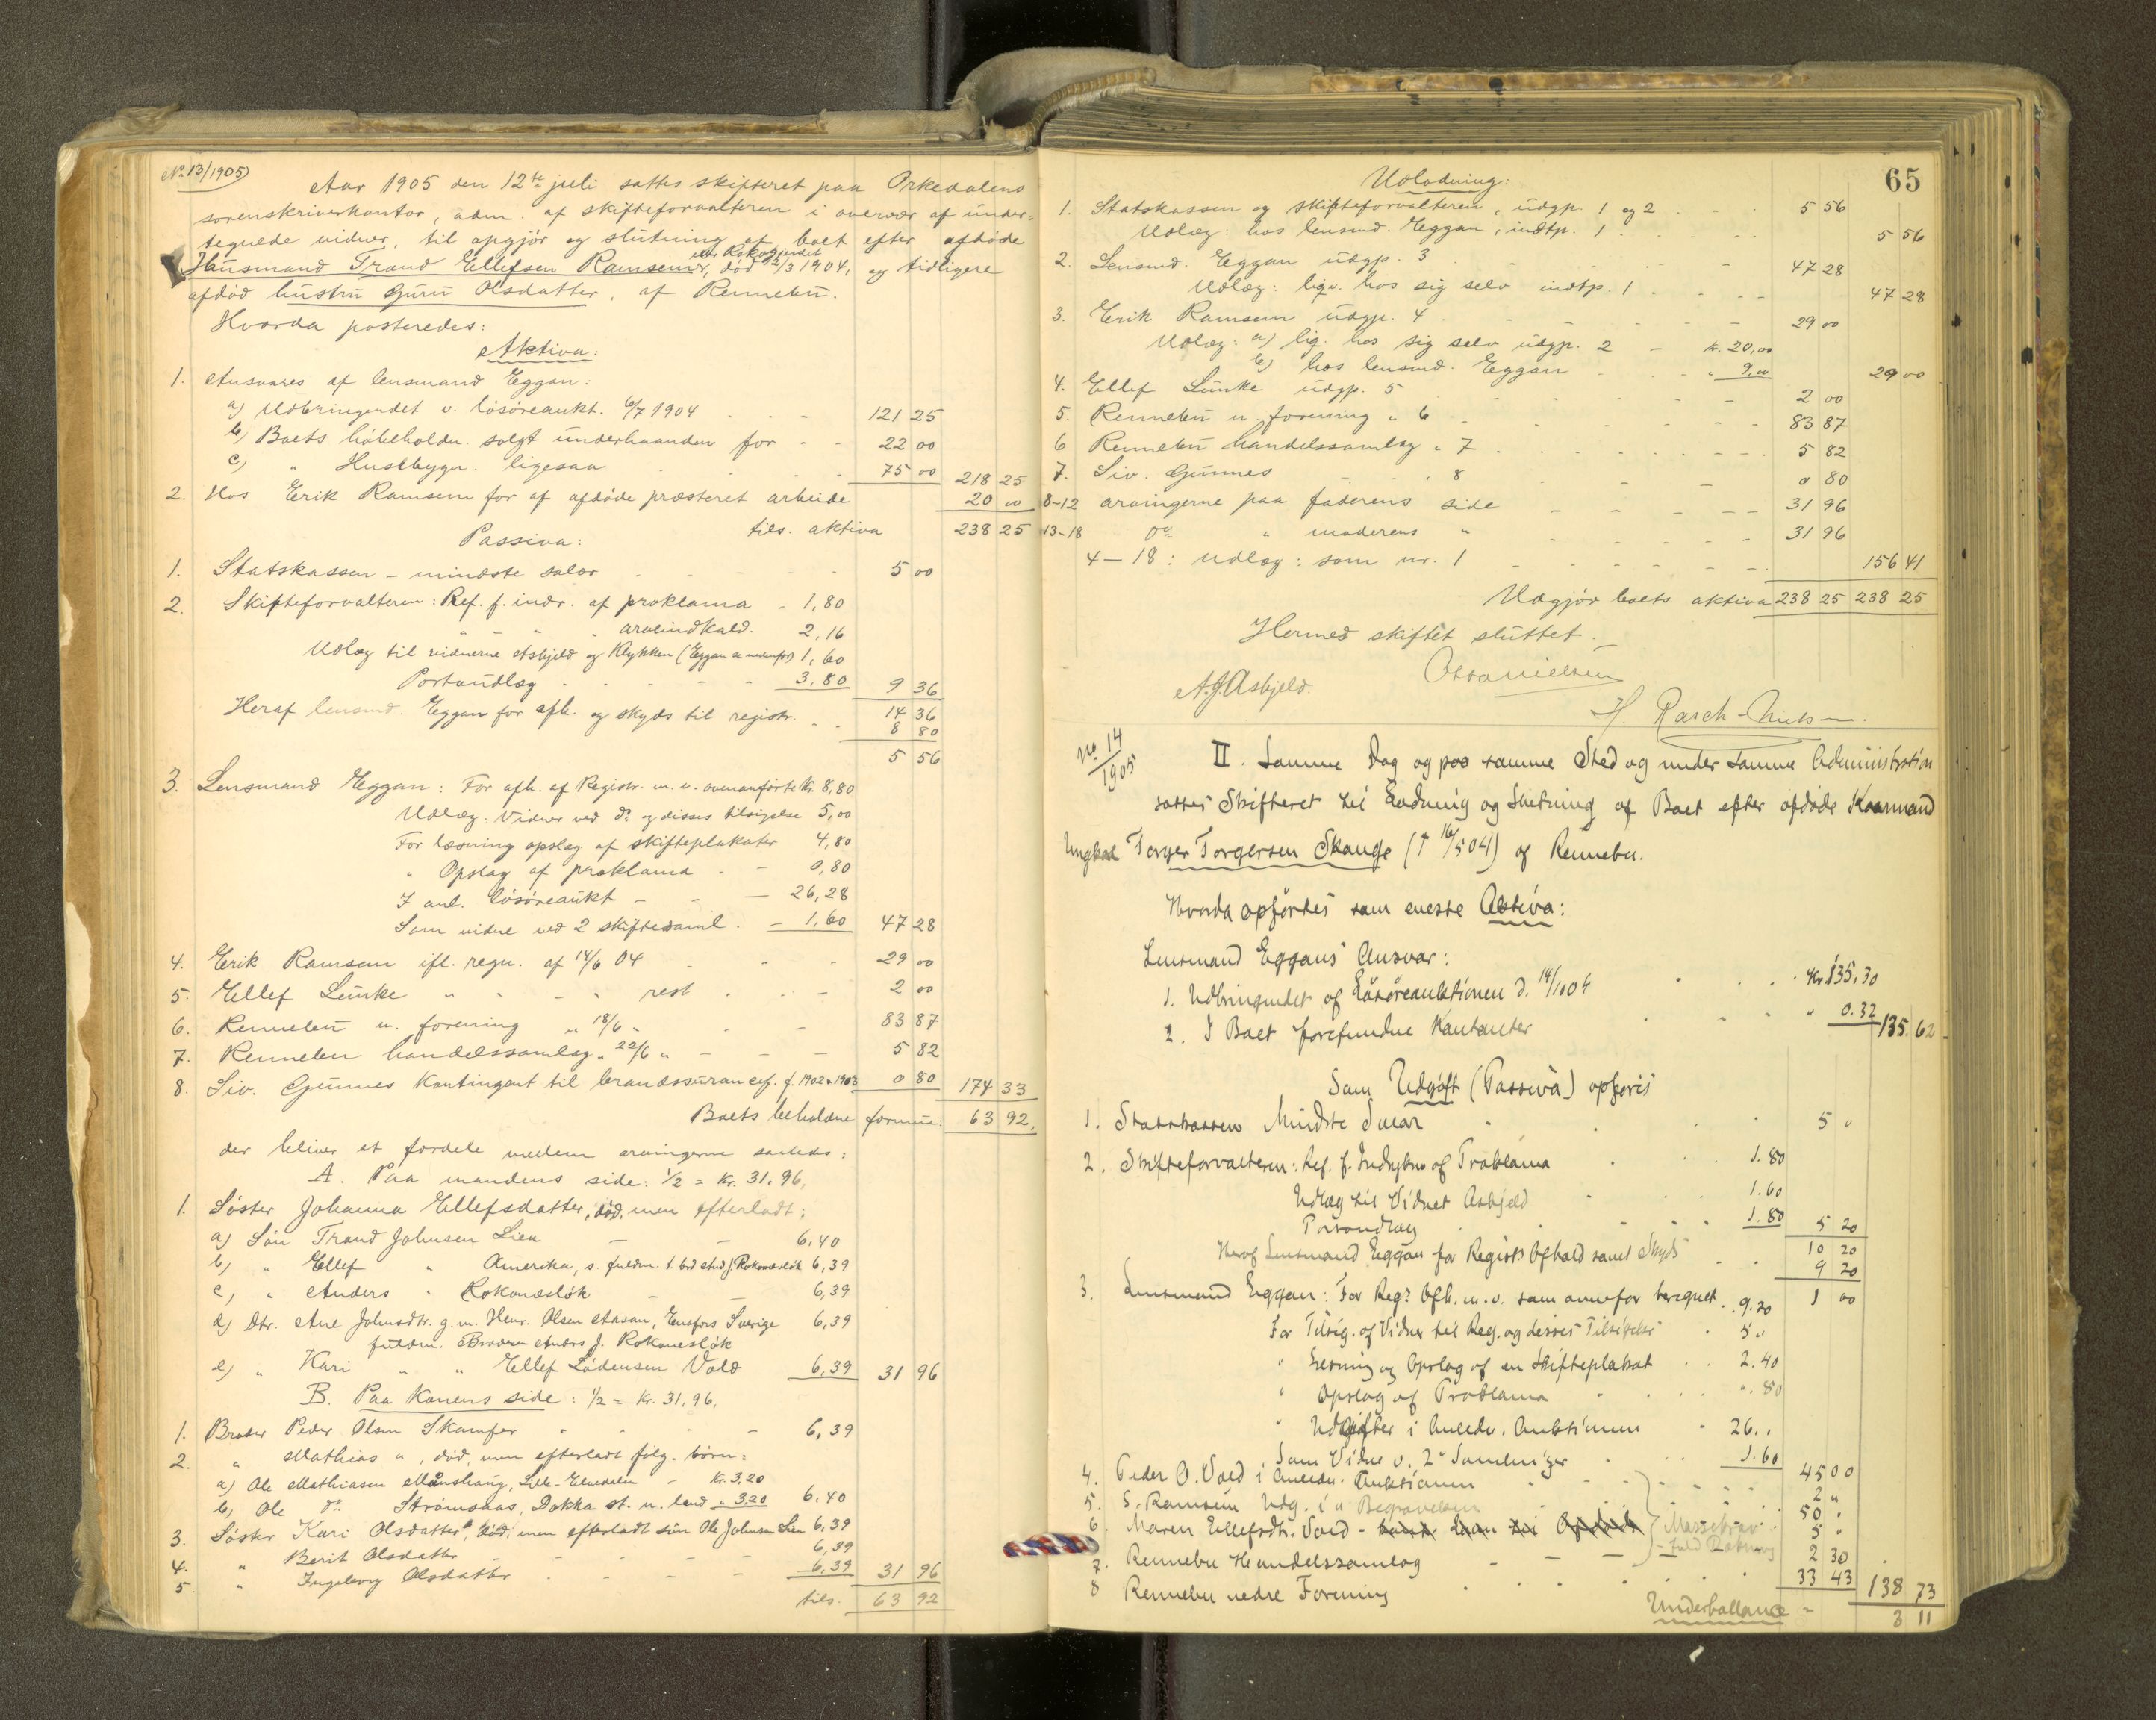 No 13/1905
Aar 1905 den 12te juli sattes skifteret paa Orkedalens
sorenskriverkontor, adm. af skifteforvalteren i overvær af under-
tegnede vidner, til opgjør og slutning af boet efter afdøde
Husmand Trond Ellefsen Ramsem, død 12/3 1904, og tidligere
afdød hustru Guru Olsdatter, af Rennebu.
Hvorda posteredes:
Aktiva:
1. Ansvares af lensmand Eggan:
a) Udbringendet v. løsøreaukt. 6/7 1904 121 25
b) Boets høbeholdn. solgt underhaanden for 22 00
c) " Husebygn. ligesaa 75 00 218 25
2. Hos Erik Ramsem for af afdøde præsteret arbeide 20 00
tils. aktiva 238 25
Passiva:
1. Statskassen - mindste salær 5 00
2. Skifteforvalteren: Ref. f. indr. af proklama - 1,80
" " " arveindkald. 2,16
Udlæg til vidnerne Asbjeld og Klykken (Eggan se nedenfor) 1,60
Portoudlæg 3,80 9 36
14 36
Heraf lensmd. Eggan for afh. og skyds til registr. 8 80
5 56
3. Lensmand Eggan: For afh. af Registr. m. v. ovenanførte Kr. 8,80
Udlæg. Vidner ved do og disses tilsigelse 5,00
For læsning opslag af skifteplakater 4,80
" Opslag af proklama 0,80
I anl. løsøreaukt 26,28
Som vidne ved 2 skiftesaml. 1,60 47 28
4. Erik Ramsem ifl. regn. af 14/6 04 29 00
5. Ellef Lunke " " " rest 2 00
6. Rennebu n. forening " 18/6 " 83 87
7. Rennebu handelssamlag " 22/6 " 5 82
8. Siv. Gunnes Kontingent til brandassurancef. f. 1902 & 1903 0 80 174 33
Boets beholdne formue: 63 92
der bliver at fordele mellem arvingerne saaledes:
A. Paa mandens side: 1/2 = Kr. 31,96,
1. Søster Johanna Ellefsdatter, død, men efterladt:
a) Søn Trond Johnsen Lien 6,40
b) " Ellef " Amerika, s. fuldm. t. brd And J. Rokoneslök 6,39
c) " Anders " Rokoneslök 6,39
d) Dtr. Ane Johnsdtr. g. m. Henr. Olsen Aasan, Eensfors Sverige 6,39
fuldm. Broderen Anders J. Rokoneslök
e) " Kari " " Ellef Lödensen Vold 6,39 31 96
B. Paa Konens side: 1/2 = Kr. 31,96.
1. Broder Peder Olsen Skamfer 6,39
2. " Mathias ", død, men efterladt følg. børn:
a) Ole Mathiasen Maanshaug, Lille-Elvedalen Kr. 3,20
b) Ole do Strømsaas, Dokka st. n. land " 3,20 6,40
3. Søster Kari Olsdatter, død, men efterladt søn Ole Johnsen Lien 6,39
4. " Berit Olsdatter 6,39
5. " Ingeborg Olsdatter 6,39 31 96
tils. 63 92
65
Udlodning:
1. Statskassen og skifteforvalteren, udgp. 1 og 2 5 56
Udlæg: hos lensmd. Eggan, indtp. 1 5 56
2. Lensmd. Eggan udgp. 3 47 28
Udlæg: liqv. hos sig selv indtp. 1 47 28
3. Erik Ramsem udgp. 4 29 00
Udlæg: a) liq. hos sig selv udgp. 2 - kr. 20,00
b) hos lensmd. Eggan " 9,00 29 00
4. Ellef Lunke udgp. 5 2 00
5. Rennebu n. forening " 6 83 87
6 Rennebu handelssamlag " 7 5 82
7. Siv. Gunnes " 8 0 80
8-12 arvingerne paa faderens side 31 96
13-18 do " moderens " 31 96
4-18: udlæg: som nr. 1 156 41
Udgjør boets aktiva 238 25 238 25
Hermed skiftet sluttet.
A. J. Asbjeld.
H. Rasch-
No 14
1905
II. Samme Dag og paa samme Sted og under samme Administration
sattes Skifteret til Lodning og Slutning af Boet efter afdøde Kaarmand
Ungkarl Torger Torgersen Skauge († 16/5 04) af Rennebu.
Hvorda opførtes som eneste Aktiva:
Lensmand Eggans Ansvar:
1. Udbringendet af Løsøreauktionen d. 14/10 04 Kr 135.30
2. I Boet forefundne Kontanter " 0.32 135.62
Som Udgift (Passiva) opføres
1. Statskassen Mindste Salær 5 "
2. Skifteforvalteren: Ref. f. Indrykn af Proklama 1.80
Udlæg til Vidnet Asbjeld 1.60
Portoudlæg 1.80 5 20
10 20
Heraf Lensmand Eggan for Registr Afhold samt Skyds 9 20
1 00
3. Lensmand Eggan: For Reg. Afh. m. v. som ovenfor beregnet 9.20
For Tilsig. af Vidner til Reg. og desses Tilsigelse 5 "
" Læsning og Opslag af en Skifteplakat 2.40
" Opslag af Proklama ". 80
" Udgifter i Anledn. Auktionen 26. "
Som Vidne v. 2 Samlinger 1.60
45 00
4. Peder O. Vold i Anledn. Auktionen 2 "
5. E. Ramsem Udg. i " Begravelsen 50 "
6. Maren Ellefsdtr. Vold 5 "
7. Rennebu Handelssamlag 2 30
8 Rennebu nedre Forening 33 43 138 73
Underballance 3 11